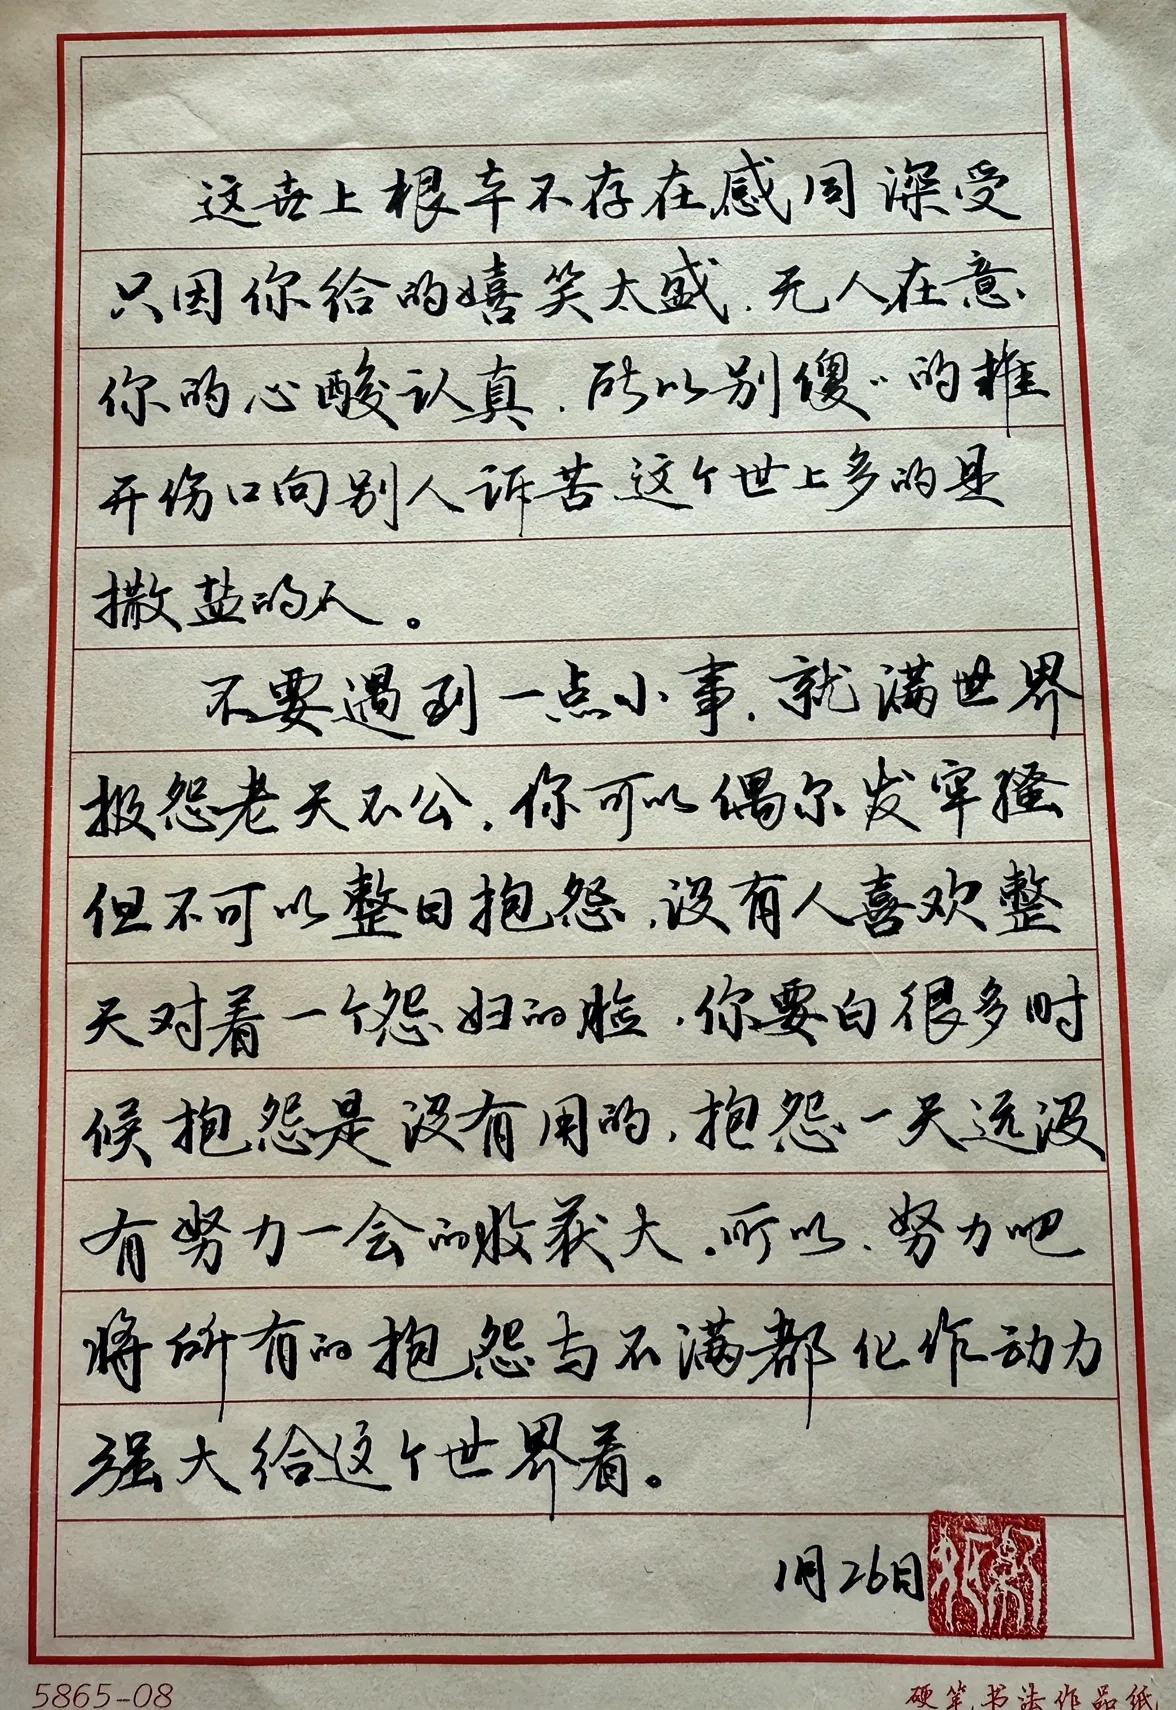 这世上根本不存在感同深受
只因你给的嬉笑太盛，无人在意
你的心酸认真，所以别傻〃的推
开伤口向别人诉苦，这个世上多的是
撒盐的人。
不要遇到一点小事，就满世界
报怨老天不公，你可以偶尔发牢骚
但不可以整日抱怨，没有人喜欢整
天对着一个怨妇的脸，你要白很多时
候抱怨是没有用的，抱怨一天远没
有努力一会的收获大。所以、努力吧
将所有的抱怨与不满都化作动力
强大给这个世界看。
1月26日
5865-08
硬笔书法作品纸